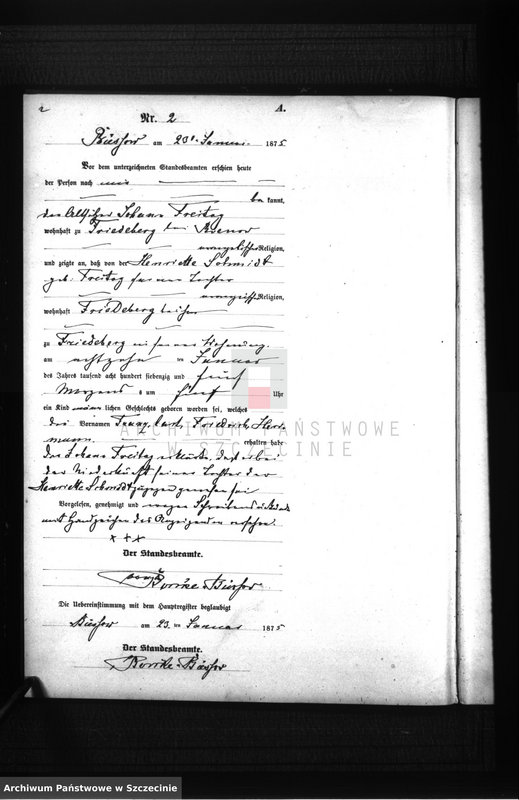 2
A.
Nr. 2
Büssow am 20. Januar 1875
Vor dem unterzeichneten Standesbeamten erschien heute
der Person nach
be kannt,
der Altsitzer Johann Freitag
wohnhaft zu Friedeberg bei
evangelischer Religion,
und zeigte an, daß von der Henriette Schmidt
geb. Freitag seiner Tochter
evangelischer Religion,
wohnhaft Friedeberg bei ihm
zu Friedeberg in seiner Wohnung
am achtzehn ten Januar
des Jahres tausend acht hundert siebenzig und fünf
Morgens um fünf Uhr
ein Kind männlichen Geschlechts geboren worden sei, welches
die Vornamen Franz Carl Friedrich Herr-
mann erhalten habe
Der Johann Freitag erklärte, daß er bei
der Niederkunft seiner Tochter der
Henriette Schmidt zugegen gewesen sei
Vorgelesen, genehmigt und wegen
mit Handzeichen des Anzeigenden versehen.
x++
Der Standesbeamte.
Büssow
Die Uebereinstimmung mit dem Hauptregister beglaubigt
Büssow am 23. ten Januar 1875
Der Standesbeamte.
Büssow
ARCHIWUM PAŃSTWOWE
W SZCZECINIE
Archiwum Państwowe w Szczecinie